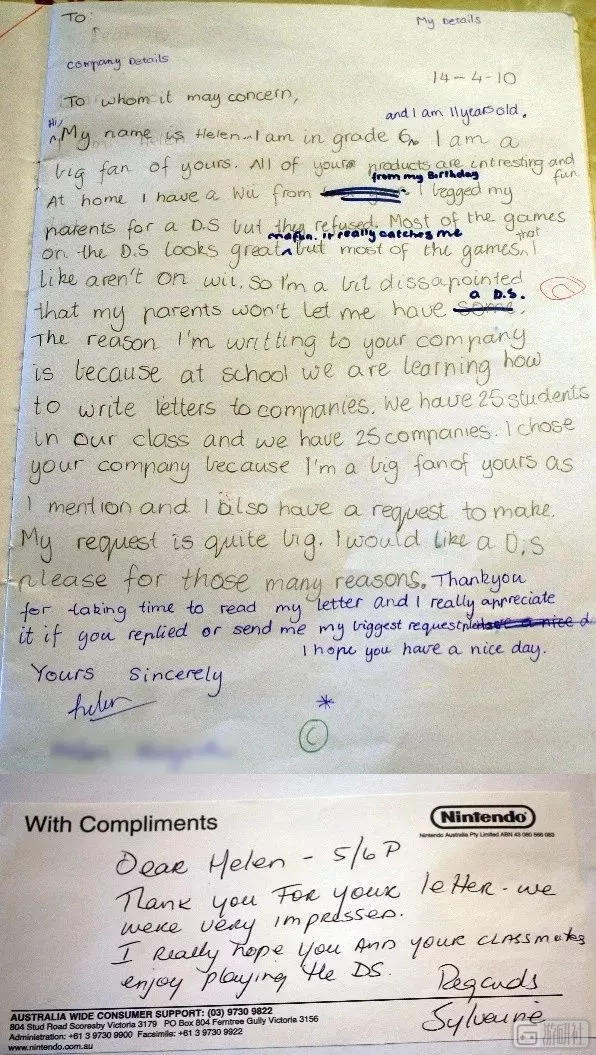 To
My Details
Company Details
14-4-10
To whom it may concern,
and I am 11 years old.
Hi, My name is Helen. I am in grade 6. I am a
big fan of yours. All of yours products are intresting and
fun
from my Birthday
At home I have a Wii from I begged my
parents for a D.S but they refused. Most of the games
it really catches me
that
on the D.S looks great but most of the games I
like aren't on wii. So I'm a bit dissapointed
a D.S.
that my parents won't let me have some.
The reason I'm writting to your company
is because at school we are learning how
to write letters to companies. We have 25 students
in our class and we have 25 companies. I chose
your company because I'm a big fan of yours as
I mention and I also have a request to make.
My request is quite big. I would like a D.S
please for those many reasons. Thankyou
for taking time to read my letter and I really appreciate
it if you replied or send me my biggest request. have a nice d
I hope you have a nice day.
Yours Sincerely
helen
*
C
With Compliments
Nintendo
Nintendo Australia Pty Limited ABN 43 060 566 083
Dear Helen - 5/6P
Thank you for your letter - we
were very impressed.
I really hope you and your classmates
enjoy playing the DS.
Regards
Sylvaine
AUSTRALIA WIDE CONSUMER SUPPORT: (03) 9730 9822
804 Stud Road Scoresby Victoria 3179 PO Box 804 Ferntree Gully Victoria 3156
Administration: +61 3 9730 9900 Facsimile: +61 3 9730 9922
www.nintendo.com.au
游研社